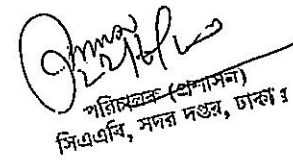 পরিচালক (প্রশাসন)
সিএএবি, সদর দপ্তর, ঢাকা।